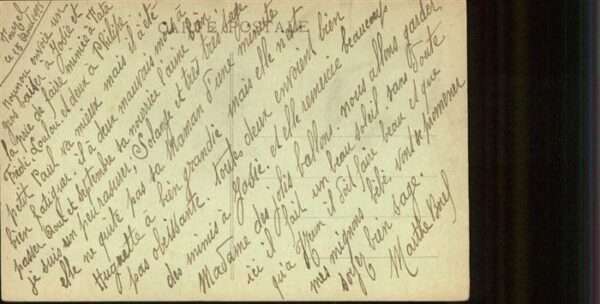 CARTE POSTALE
Nounou envoie un
gros baiser à Josie et
la prie de faire mimis à Tata
Loulou et deux à Philipe
petit Paul va mieux mais il a été
bien fatigué. il a deux mauvais mois à
passer Août et septembre sa nourrice l'aime bien
je suis un peu rassurée, Solange et très très sage
elle ne quite pas sa Maman d'une minute
Huguette a bien grandie mais elle n'est
pas obeissante. toutes deux envoient bien
des mimis à Josie et elle remercie beaucoup
Madame des jolis ballons. nous allons garder
ici il fait un beau soleil. sans doute
qu'a il doit faire beau et que
mes mignons bébé vont se promener
soyez bien sage.
Marthe